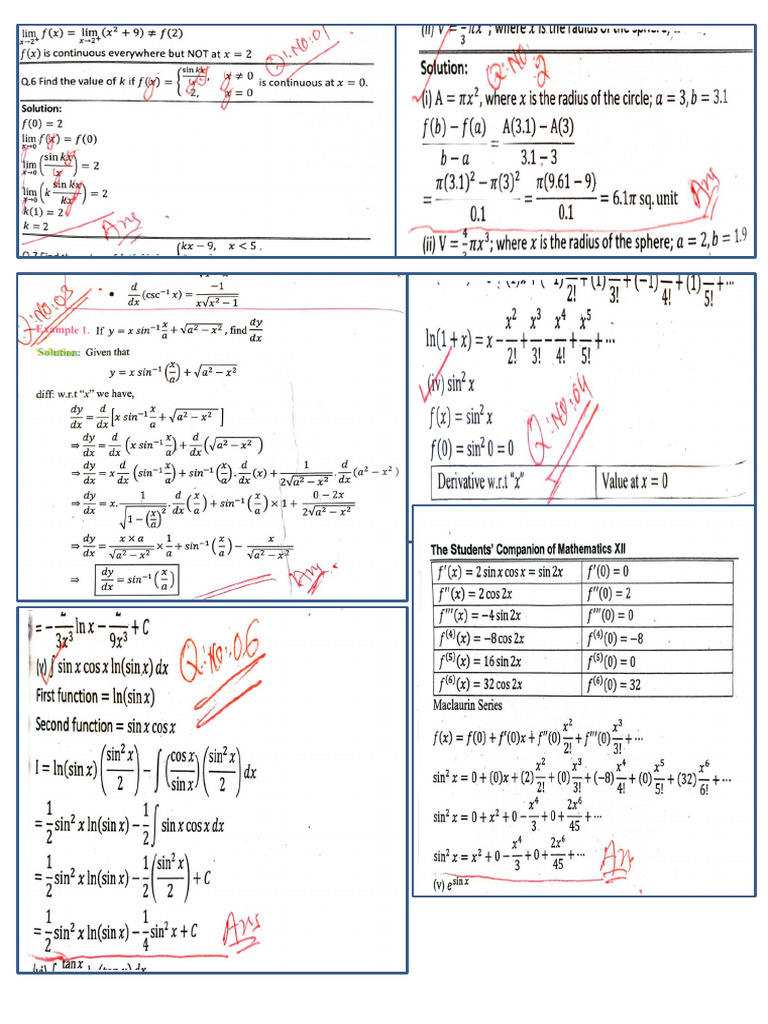 lim x→2⁺ f(x) = lim x→2⁺ (x² + 9) ≠ f(2)
f(x) is continuous everywhere but NOT at x = 2
Q:No:01
Q.6 Find the value of k if f(x) = { sin kx / x, x ≠ 0
2, x = 0 is continuous at x = 0.
Solution:
f(0) = 2
lim x→0 f(x) = f(0)
lim x→0 (sin kx / x) = 2
lim x→0 (k sin kx / kx) = 2
k(1) = 2
k = 2
Ans
{kx − 9, x < 5
(ii) V = πx³; where x is the radius of the sphere,
Solution:
Q:No:2
(i) A = πx², where x is the radius of the circle; a = 3, b = 3.1
f(b) − f(a) / b − a = A(3.1) − A(3) / 3.1 − 3
= π(3.1)² − π(3)² / 0.1 = π(9.61 − 9) / 0.1 = 6.1π sq. unit
Ans
(ii) V = 4/3 πx³; where x is the radius of the sphere; a = 2, b = 1.9
Q:No:03
• d/dx (csc⁻¹ x) = −1 / x√x² − 1
Example 1. If y = x sin⁻¹ x/a + √a² − x² , find dy/dx
Solution: Given that
y = x sin⁻¹ (x/a) + √a² − x²
diff: w.r.t "x" we have,
dy/dx = d/dx [x sin⁻¹ x/a + √a² − x² ]
⇒ dy/dx = d/dx (x sin⁻¹ x/a) + d/dx (√a² − x² )
⇒ dy/dx = x d/dx (sin⁻¹ x/a) + sin⁻¹ (x/a). d/dx (x) + 1 / 2√a² − x² . d/dx (a² − x² )
⇒ dy/dx = x. 1 / √1 − (x/a)² . d/dx (x/a) + sin⁻¹ (x/a) × 1 + 0 − 2x / 2√a² − x²
⇒ dy/dx = x × a / √a² − x² × 1/a + sin⁻¹ (x/a) − x / √a² − x²
⇒ dy/dx = sin⁻¹ (x/a)
Ans
ln(1 + x) = x − x²/2! + x³/3! − x⁴/4! + x⁵/5! + ⋯
(iv) sin² x
f(x) = sin² x
Q:No:04
f(0) = sin² 0 = 0
Derivative w.r.t "x" Value at x = 0
The Students' Companion of Mathematics XII
f′(x) = 2 sin x cos x = sin 2x f′(0) = 0
f″(x) = 2 cos 2x f″(0) = 2
f‴(x) = −4 sin 2x f‴(0) = 0
f⁽⁴⁾(x) = −8 cos 2x f⁽⁴⁾(0) = −8
f⁽⁵⁾(x) = 16 sin 2x f⁽⁵⁾(0) = 0
f⁽⁶⁾(x) = 32 cos 2x f⁽⁶⁾(0) = 32
Maclaurin Series
f(x) = f(0) + f′(0)x + f″(0) x²/2! + f‴(0) x³/3! + ⋯
sin² x = 0 + (0)x + (2) x²/2! + (0) x³/3! + (−8) x⁴/4! + (0) x⁵/5! + (32) x⁶/6! + ⋯
sin² x = 0 + x² + 0 − x⁴/3 + 0 + 2x⁶/45 + ⋯
sin² x = x² + 0 − x⁴/3 + 0 + 2x⁶/45 + ⋯
Ans
(v) e^sin x
= − /3x³ ln x − /9x³ + C
(v) ∫ sin x cos x ln(sin x) dx
Q:No:06
First function = ln(sin x)
Second function = sin x cos x
I = ln(sin x) (sin² x / 2) − ∫ (cos x / sin x) (sin² x / 2) dx
= 1/2 sin² x ln(sin x) − 1/2 ∫ sin x cos x dx
= 1/2 sin² x ln(sin x) − 1/2 (sin² x / 2) + C
= 1/2 sin² x ln(sin x) − 1/4 sin² x + C
Ans